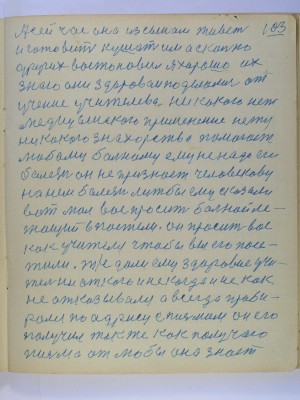 103
Асей час она из сынам живет
и готовит кушат им а сколко
других востоновил я харошо их
знаю они здаровои подешали от
учение учителива никокого нет
медицинского применение нету
никокого знахорство помогает
любому болному ему не надо ей
болезн он не признает человекову
на нем болезн лиж бы ему сказали
вот мол вос просит болной ле-
жащий впостели. он просит вос
как учителя чтобы вы его посе-
тили. Же дали ему здаровие учи-
тел ни от кого и некогда и не как
не отказывали а всегда проби-
рали по адрису списмам он его
получил так же как получаю
писма от любы она знает